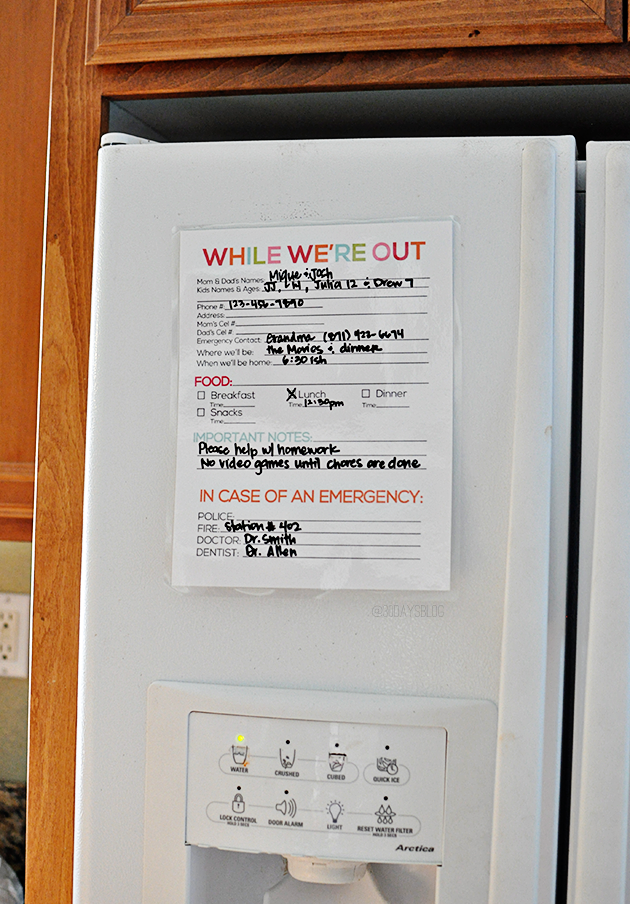 WHILE WE'RE OUT
Mom & Dad's Names: Mique & Josh
Kids Names & Ages: JJ, 14, Julia 12 & Drew 7
Phone #: 123-456-7890
Address:
Mom's Cel #
Dad's Cel #
Emergency Contact: Grandma (871) 422-6674
Where we'll be: the Movies & dinner
When we'll be home: 6:30 ish
FOOD:
Breakfast X Lunch Dinner
Time: Time: 12:30pm Time:
Snacks
Time:
IMPORTANT NOTES:
Please help w/ homework
No video games until chores are done
IN CASE OF AN EMERGENCY:
POLICE:
FIRE: Station # 402
DOCTOR: Dr. Smith
DENTIST: Dr. Allen
@30DAYSBLOG
WATER CRUSHED CUBED QUICK ICE
LOCK CONTROL DOOR ALARM LIGHT RESET WATER FILTER
HOLD 3 SECS HOLD 3 SECS
Arctica